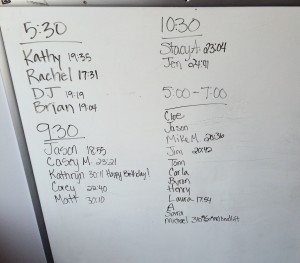 5:30
Kathy 19:35
Rachel 17:31
DJ 19:19
Brian 19:04
9:30
Jason 18:55
Casey M. 23:21
Kathryn 30:11 Happy Birthday!
Corey 22:40
Matt 30:10
10:30
Stacy A. 23:04
Jen
5:00-7:00
Cloe
Jason
Mike M. 20:36
Jim 20:42
Tom
Carla
Byron
Henry
Laura 17:54
A
Sara
michael